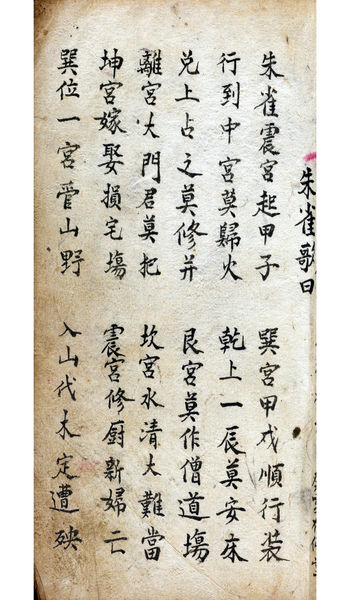 朱雀歌曰
朱雀震宮起甲子　巽宮甲戍順行裝
行到中宮莫歸火　乾上一辰莫安床
兑上占之莫修井　艮宮莫作僧道塲
離宮大門君莫把　坎宮水清大難當
坤宮嫁娶損宅塲　震宮修厨新婦亡
巽位一宮管山野　入山代木定遭殃